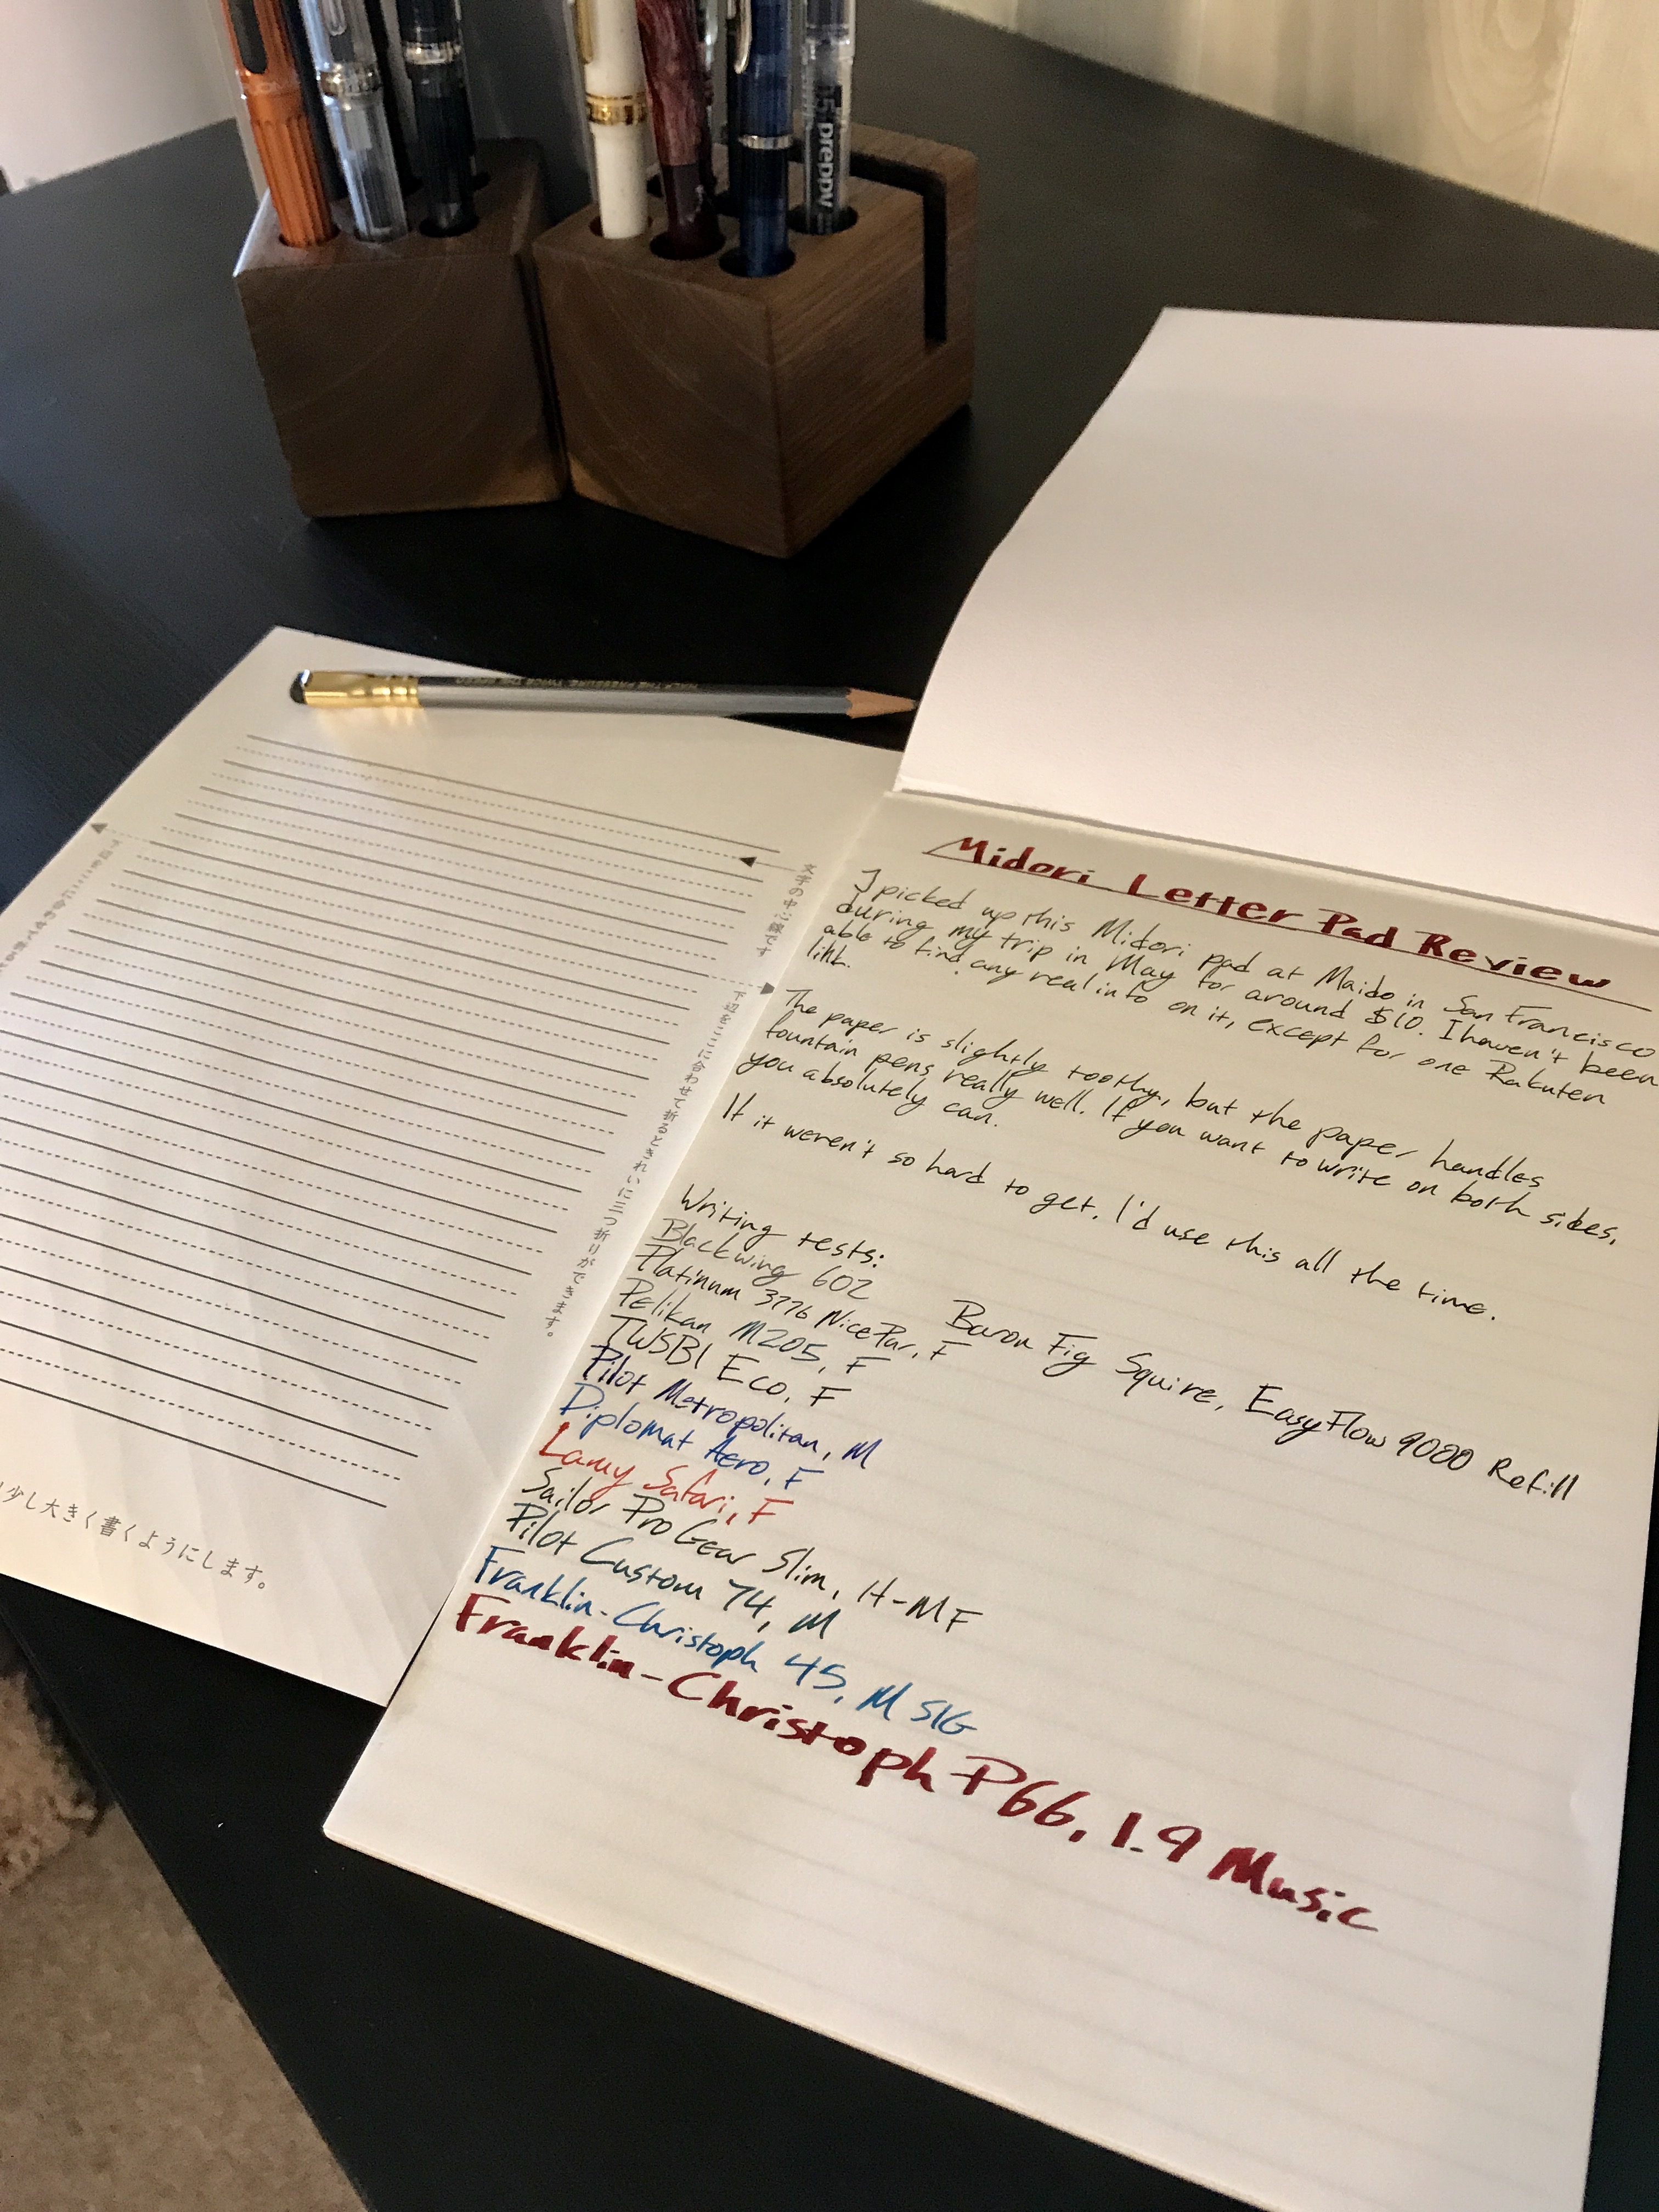 preppy
HALF THE PRESSURE, TWICE THE SPEED
Midori Letter Pad Review
I picked up this Midori pad at Maido in San Francisco
during my trip in May for around $10. I haven't been
able to find any real info on it, except for one Rakuten
link.
The paper is slightly toothy, but the paper handles
fountain pens really well. If you want to write on both sides,
you absolutely can.
If it weren't so hard to get, I'd use this all the time.
Writing tests:
Blackwing 602
Platinum 3776 Nice Pur, F
Baron Fig Squire, EasyFlow 9000 Refill
Pelikan M205, F
TWSBI Eco, F
Pilot Metropolitan, M
Diplomat Aero, F
Lamy Safari, F
Sailor Pro Gear Slim, H-MF
Pilot Custom 74, M
Franklin-Christoph 45, M SIG
Franklin-Christoph P66, 1.9 Music
少し大きく書くようにします。